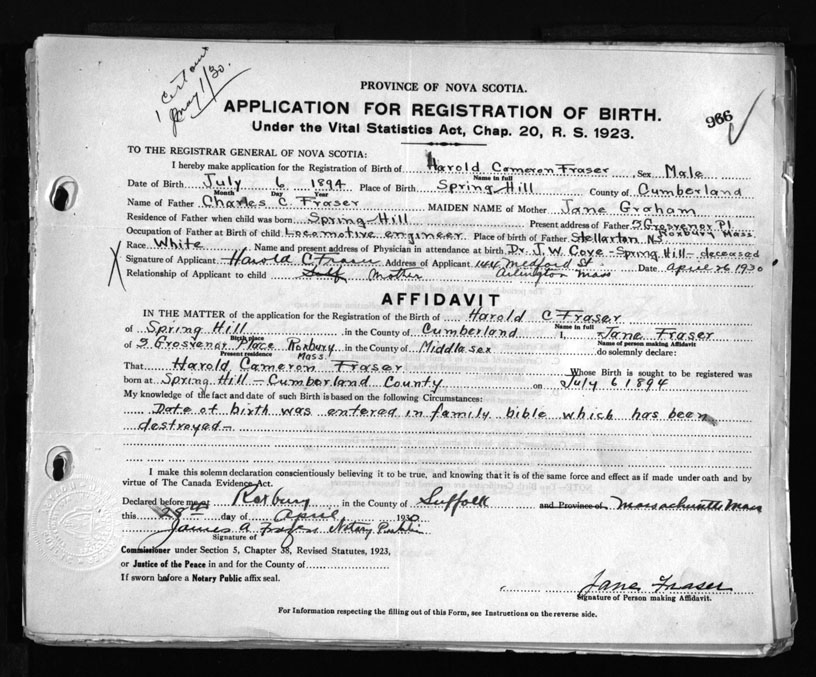 1 Cert out
May 1/30.
966
PROVINCE OF NOVA SCOTIA.
APPLICATION FOR REGISTRATION OF BIRTH.
Under the Vital Statistics Act, Chap. 20, R. S. 1923.
TO THE REGISTRAR GENERAL OF NOVA SCOTIA:
I hereby make application for the Registration of Birth of Harold Cameron Fraser Sex Male
Name in full
Date of Birth July 6 1894 Place of Birth Spring Hill County of Cumberland
Month Day Year
Name of Father Charles C. Fraser MAIDEN NAME of Mother Jane Graham
Residence of Father when child was born Spring Hill Present address of Father 5 Grosvenor Pl.
Roxbury Mass.
Occupation of Father at Birth of child Locomotive engineer Place of birth of Father Stellarton N.S
Race White Name and present address of Physician in attendance at birth Dr. J. W. Cove - Spring Hill - deceased
Signature of Applicant Harold C Fraser Address of Applicant 144 Medford St Date april 26 1930
Relationship of Applicant to child Self Mother Arlington Mass
AFFIDAVIT
IN THE MATTER of the application for the Registration of the Birth of Harold C Fraser
Name in full
of Spring Hill in the County of Cumberland I, Jane Fraser
Birth place Name of person making Affidavit
of 5 Grosvenor Place Roxbury Mass. in the County of Middlesex do solemnly declare:
Present residence
That Harold Cameron Fraser Whose Birth is sought to be registered was
born at Spring Hill - Cumberland County on July 6 1894
My knowledge of the fact and date of such Birth is based on the following Circumstances:
Date of birth was entered in family bible which has been
destroyed -
I make this solemn declaration conscientiously believing it to be true, and knowing that it is of the same force and effect as if made under oath and by
virtue of The Canada Evidence Act.
Declared before me at Roxbury in the County of Suffolk and Province of Massachusetts Mass
this 28th day of April 1930
James A Notary Public
Signature of
Commissioner under Section 5, Chapter 38, Revised Statutes, 1923,
or Justice of the Peace in and for the County of
If sworn before a Notary Public affix seal.
Jane Fraser
Signature of Person making Affidavit.
For Information respecting the filling out of this Form, see Instructions on the reverse side.